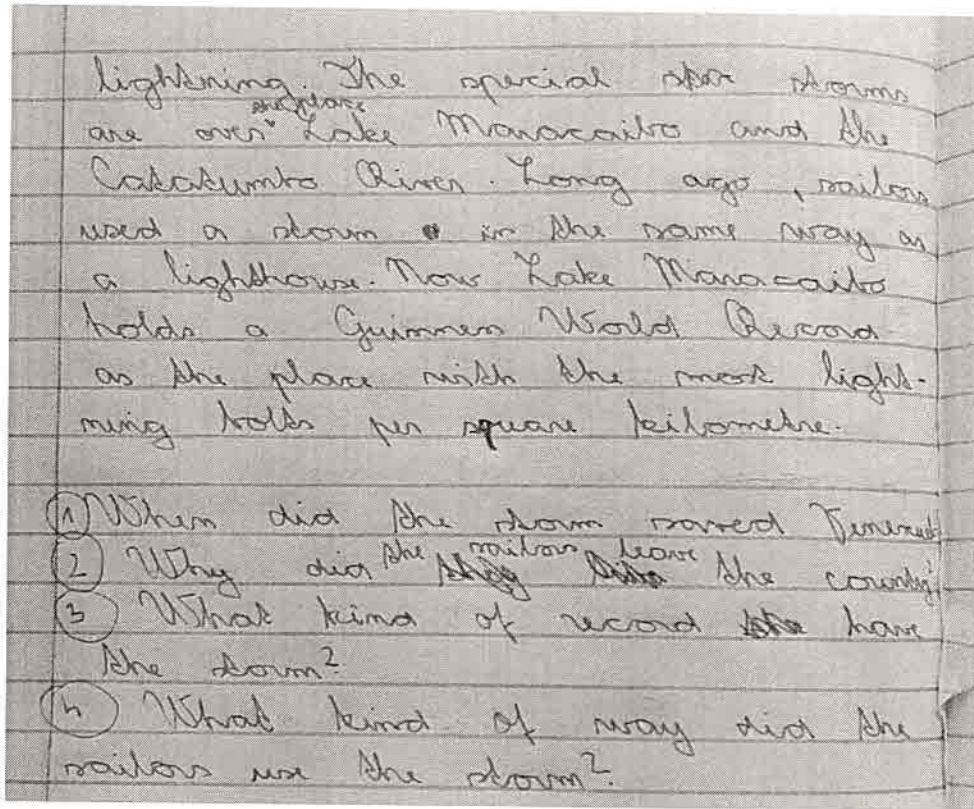 lightning. The special storms
are over the place Lake Maracaibo and the
Catatumbo River. Long ago, sailors
used a storm in the same way as
a lighthouse. Now Lake Maracaibo
holds a Guinness World Record
as the place with the most light-
ning bolts per square kilometre.
1 When did the storm saved
2 Why did the sailors leave the county?
3 What kind of record have
the storm?
4 What kind of way did the
sailors use the storm?